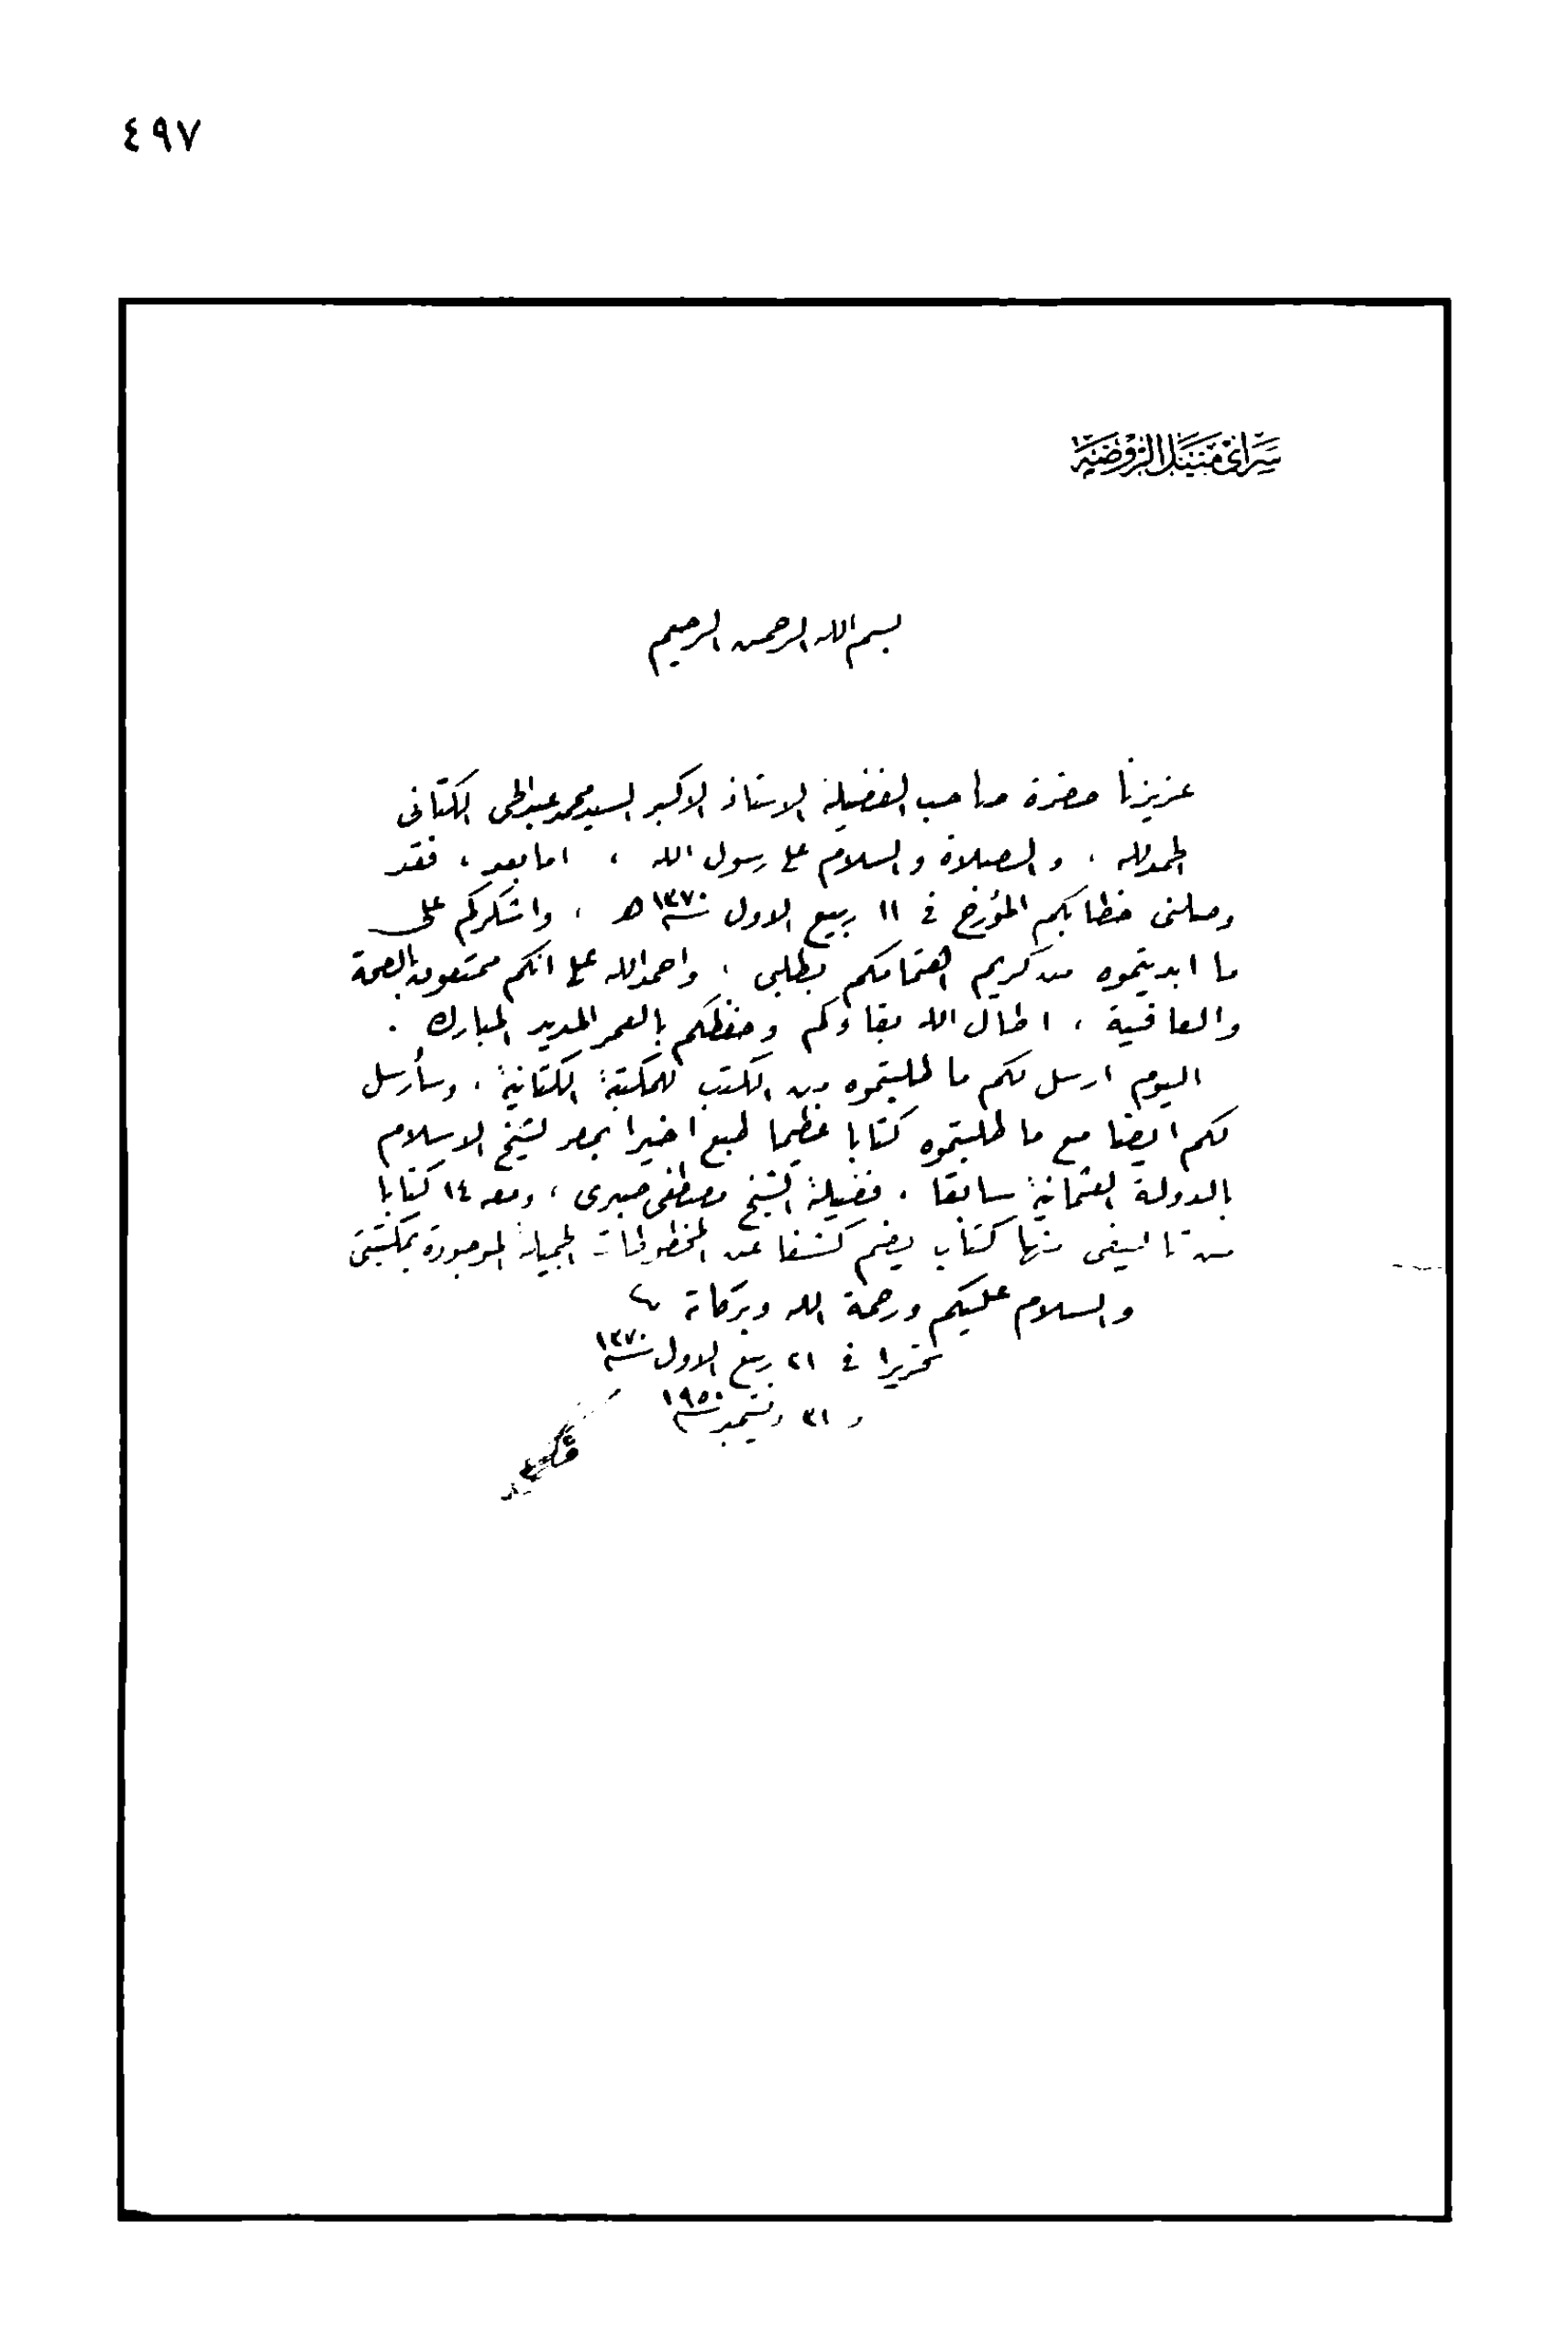 ٤٩٧
سراي منيل الروضة
بسم الله الرحمن الرحيم
عزيزنا حضرة صاحب الفضيلة الاستاذ الاكبر السيد محمد عبد الحي الكتانى
الحمد لله ، والصلاة والسلام على رسول الله ، اما بعد ، فقد
وصلنى خطابكم المؤرخ فى ١١ ربيع الاول سنة ١٣٧٠ هـ ، واشكركم على
ما ابديتموه من كريم اهتمامكم بطلبى ، واحمد الله على انكم متمتعون بالصحة
والعافية ، اطال الله بقاءكم وحفظكم بالعمر المديد المبارك .
اليوم ارسل لكم ما طلبتموه من الكتب للمكتبة الكتانية ، وسأرسل
لكم ايضا مع ما طلبتموه كتابا عظيما طبع اخيرا بمصر لشيخ الاسلام
بالدولة العثمانية سابقا ، فضيلة الشيخ مصطفى صبرى ، ومعه ١٤ كتابا
من تاليفى منها كتاب يضم كشفا عن المخطوطات الجميلة الموجودة بمكتبتى
والسلام عليكم ورحمة الله وبركاته
تحريرا فى ٢١ ربيع الاول سنة ١٣٧٠
و ٣١ دسمبر سنة ١٩٥٠